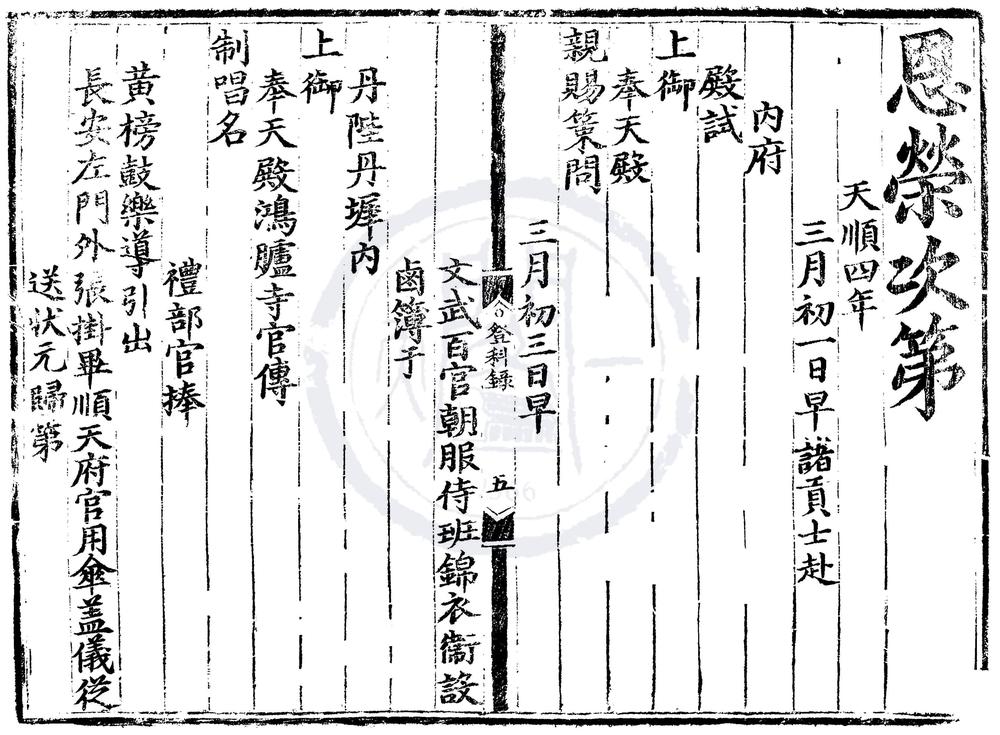 恩榮次第
天順四年
三月初一日早諸貢士赴
內府
殿試
上御
奉天殿
親賜策問
三月初三日早
登科錄
五
文武百官朝服侍班錦衣衞設
鹵簿于
丹陛丹墀內
上御
奉天殿鴻臚寺官傳
制唱名
禮部官捧
黃榜鼓樂導引出
長安左門外張掛畢順天府官用傘盖儀從
送狀元歸第